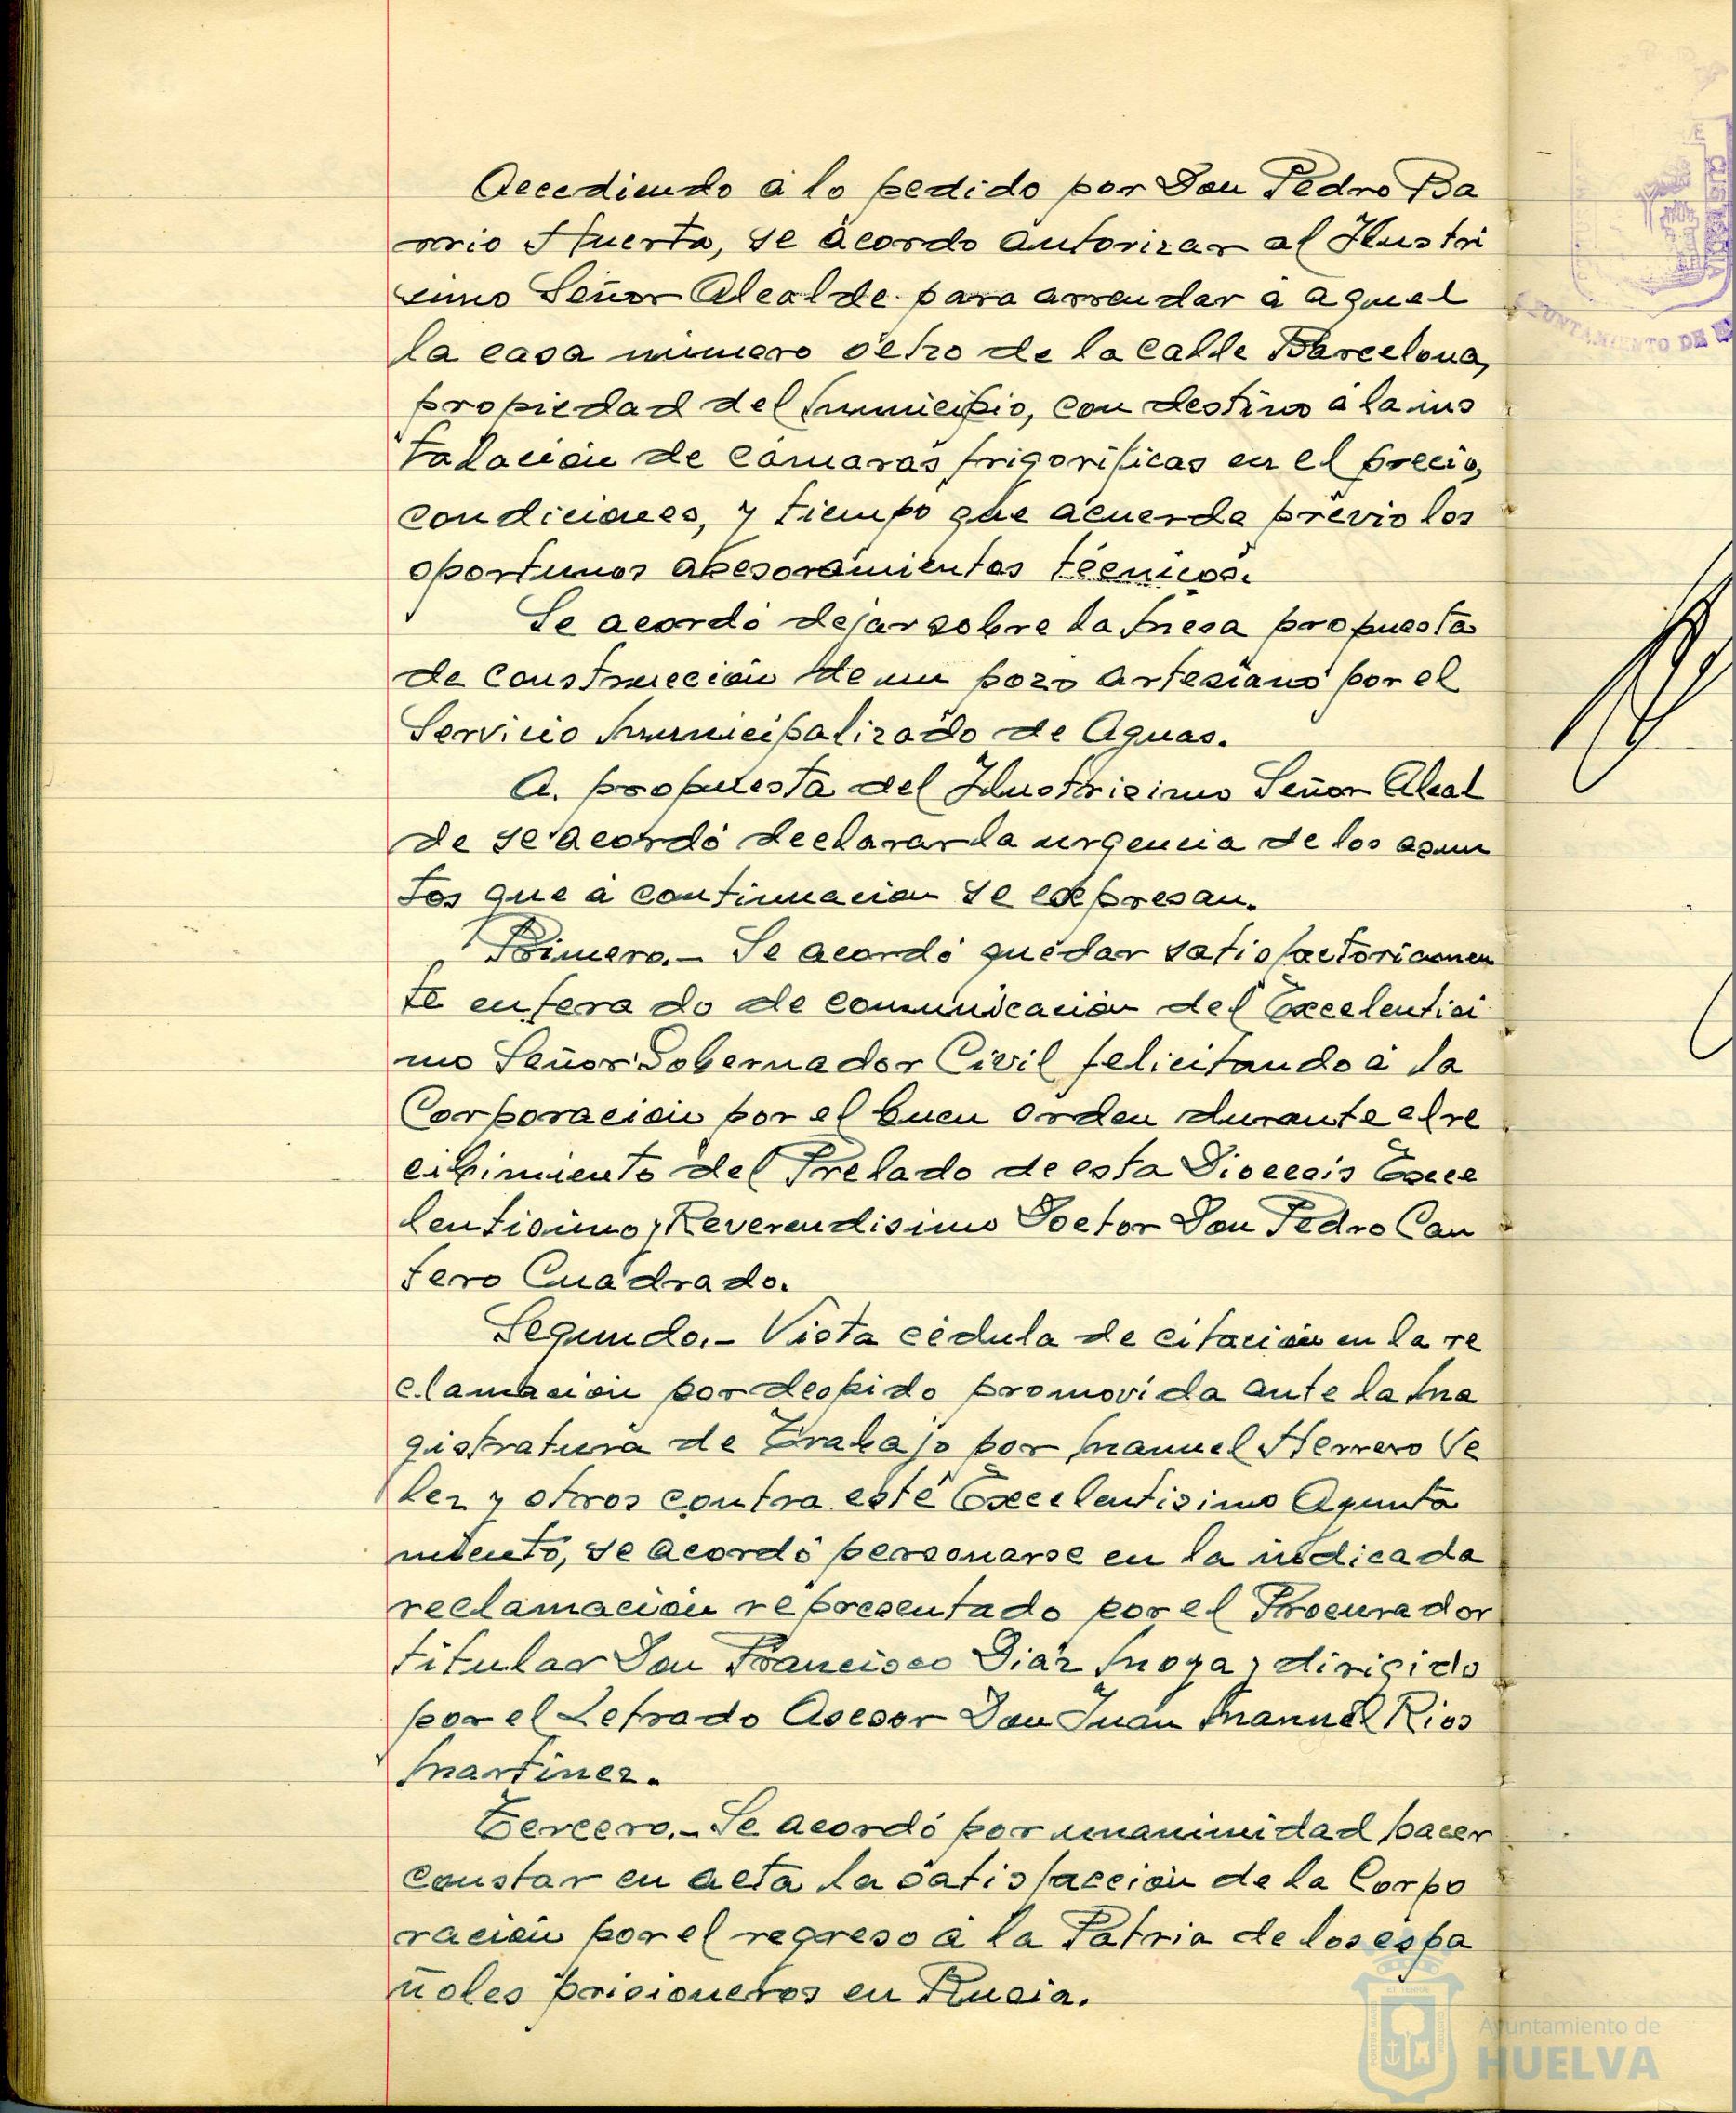 Accediendo á lo pedido por Don Pedro Ba
rrio Huerta, se acordo autorizar al Ilustri
simo Señor Alcalde para arrendar á aquel
la casa número ocho de la calle Barcelona,
propiedad del Municipio, con destino á la ins
talación de cámaras frigoríficas en el precio,
condiciones, y tiempo que acuerde previo los
oportunos asesoramientos técnicos.
Se acordó dejar sobre la Mesa propuesta
de construcción de un pozo artesiano por el
Servicio Municipalizado de Aguas.
A. propuesta del Ilustrisimo Señor Alcal
de se acordó declarar la urgencia de los asun
tos que á continuacion se expresan.
Primero.- Se acordó quedar satisfactoriamen
te enterado de comunicación del Excelentisi
mo Señor Gobernador Civil felicitando á la
Corporación por el buen orden durante el re
cibimiento del Prelado de esta Diocesis Exce
lentisimo y Reverendisimo Doctor Don Pedro Can
tero Cuadrado.
Segundo.- Vista cédula de citación en la re
clamación por despido promovida ante la Ma
gistratura de Trabajo por Manuel Herrero Ve
lez y otros contra este Excelentisimo Ayunta
miento, se acordó personarse en la indicada
reclamación representado por el Procurador
titular Don Francisco Diáz Moya y dirigido
por el Letrado Asesor Don Juan Manuel Rios
Martinez.
Tercero.- Se acordó por unanimidad hacer
constar en acta la satisfacción de la Corpo
ración por el regreso á la Patria de los espa
ñoles prisioneros en Rusia.
CUSTODIA
AYUNTAMIENTO DE
Ayuntamiento de
HUELVA